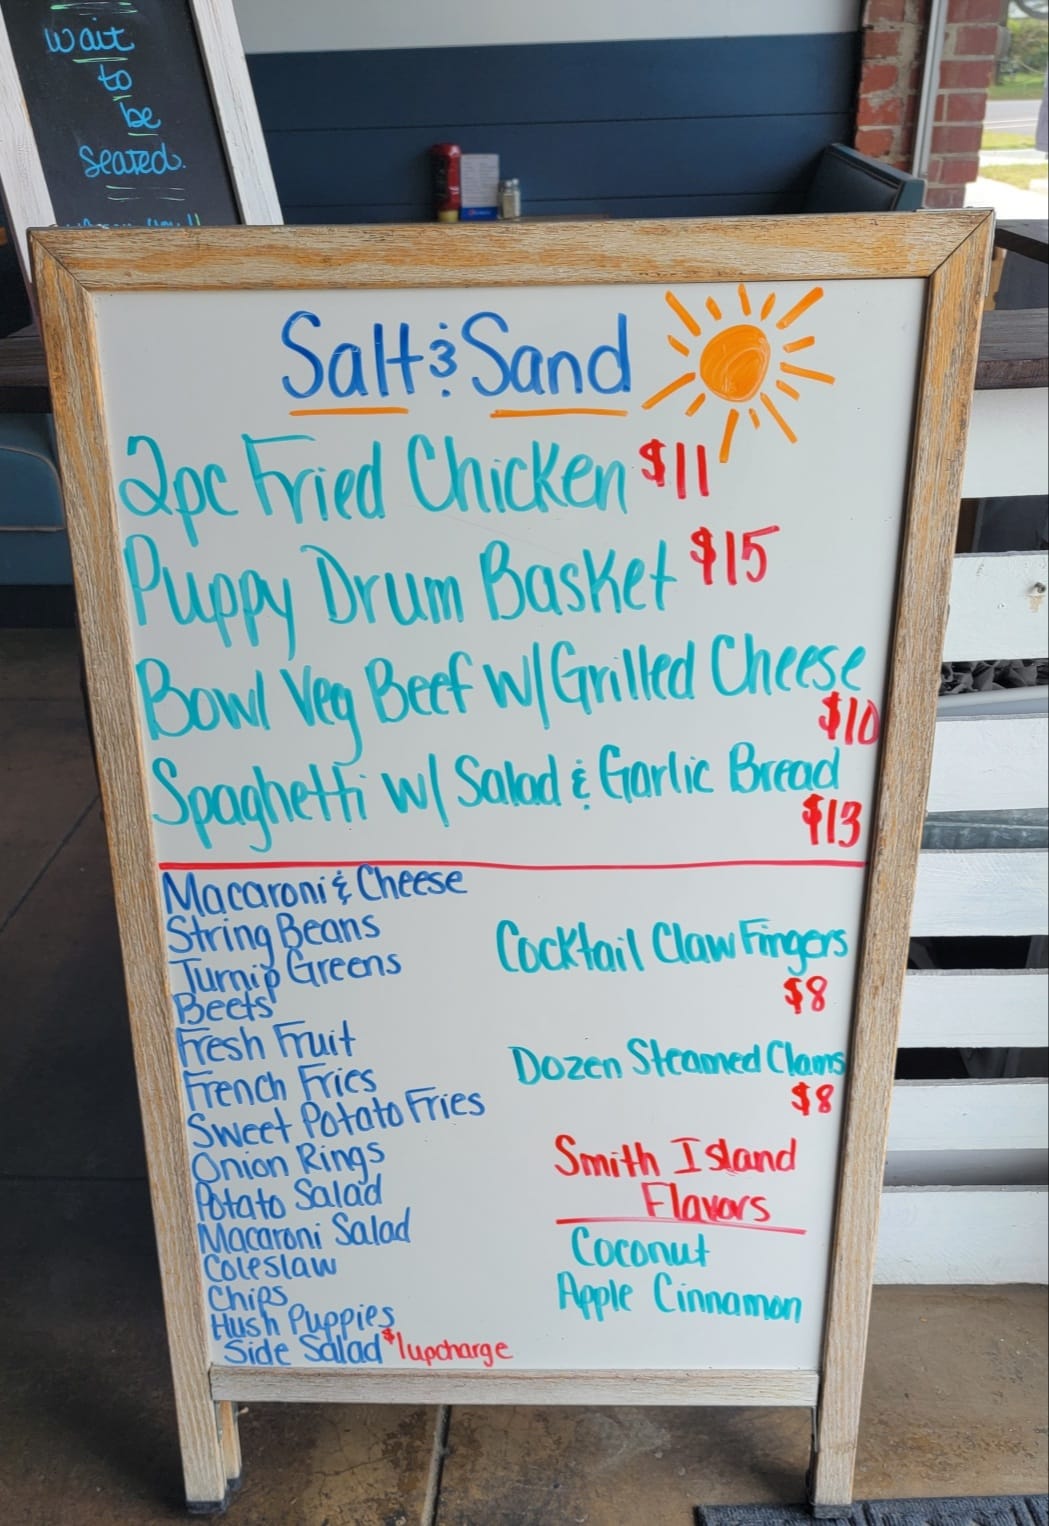 wait
to
be
seated.
Salt & Sand
2pc Fried Chicken $11
Puppy Drum Basket $15
Bowl Veg Beef w/ Grilled Cheese
$10
Spaghetti w/ Salad & Garlic Bread
$13
Macaroni & Cheese
String Beans
Turnip Greens
Beets
Fresh Fruit
French Fries
Sweet Potato Fries
Onion Rings
Potato Salad
Macaroni Salad
Coleslaw
Chips
Hush Puppies
Side Salad $1upcharge
Cocktail Claw Fingers
$8
Dozen Steamed Clams
$8
Smith Island
Flavors
Coconut
Apple Cinnamon